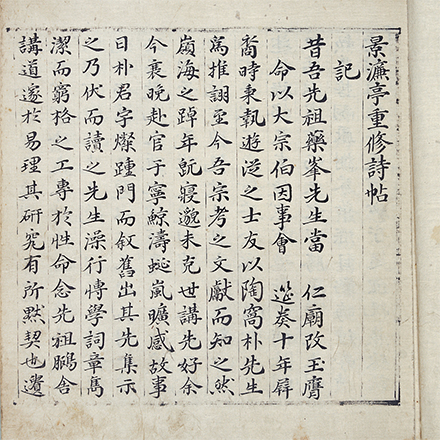 景濂亭重修詩帖
記
昔吾先祖藥峯先生當　仁廟改玉膺
命以大宗伯因事會　筵奏十年辟
裔時東執遊從之士友以陶窩朴先生
篤推詡至今吾宗考之文獻而知之然
嶺海之踔年旣寢邈未克世講先好余
今衰晚赴官于寧鯨濤蜑嵐曠感故事
日朴君字燦踵門而叙舊出其先集示
之乃伏而讀之先生澡行博學詞章雋
潔而窮格之工專於性命念先祖鵩舍
講道邃於易理其硏究有所默契也遺